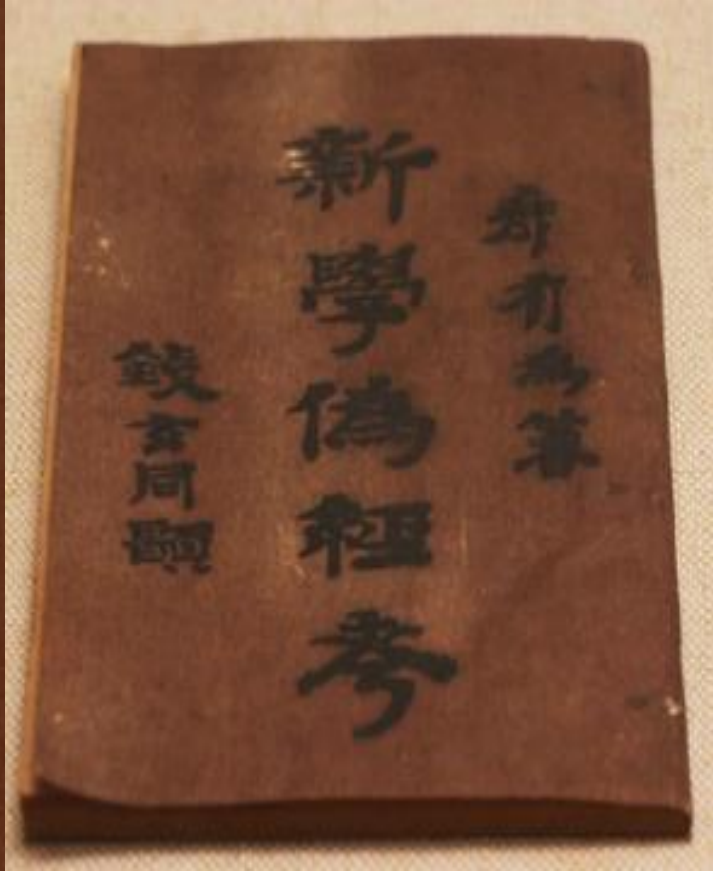 康有為著
新學偽經考
錢玄同題